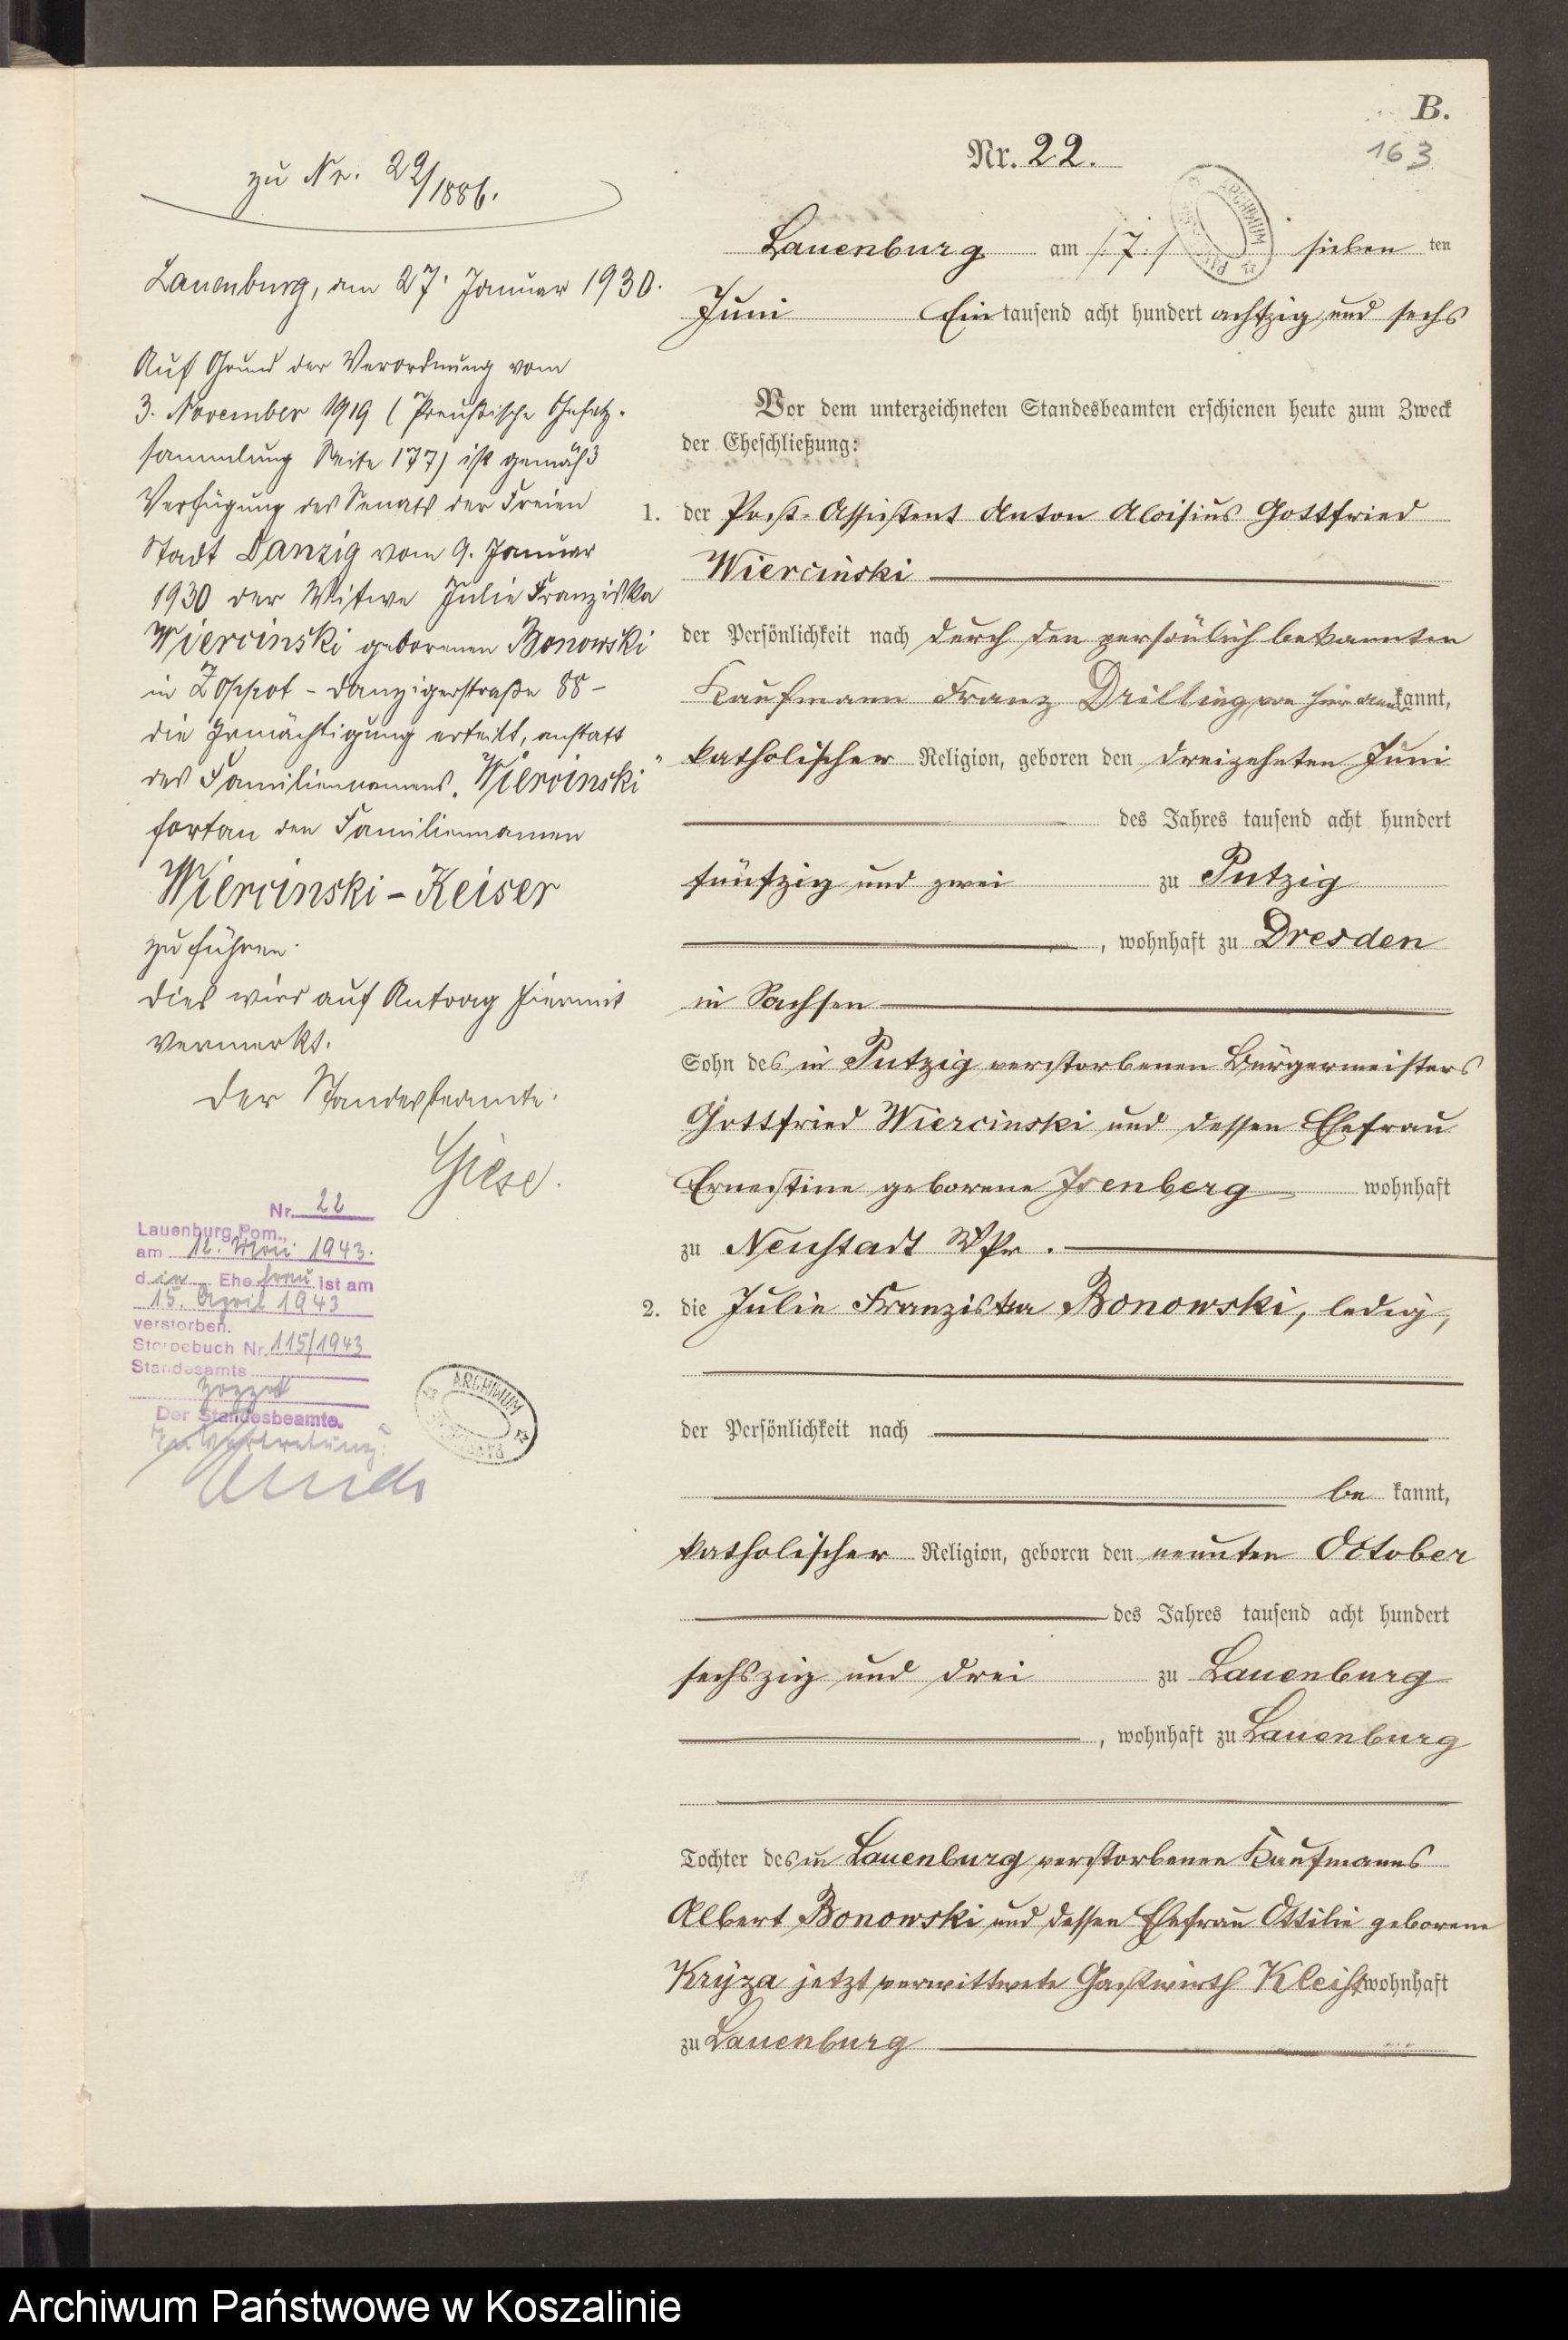 B.
163
Nr. 22.
Lauenburg am /:7:/ sieben ten
Juni Ein tausend acht hundert achtzig und sechs
Vor dem unterzeichneten Standesbeamten erschienen heute zum Zweck
der Eheschließung:
1. der Post-Assistent Anton Aloisius Gottfried
Wiercinski
der Persönlichkeit nach durch den persönlich bekannten
Kaufmann Franz Drilling von hier aner kannt,
katholischer Religion, geboren den dreizehnten Juni
des Jahres tausend acht hundert
fünfzig und zwei zu Putzig
, wohnhaft zu Dresden
in Sachsen
Sohn des in Putzig verstorbenen Bürgermeisters
Gottfried Wiercinski und dessen Ehefrau
Ernestine geborene Isenberg wohnhaft
zu Neustadt WPr.
2. die Julie Franziska Bonowski, ledig,
der Persönlichkeit nach
be kannt,
katholischer Religion, geboren den neunten October
des Jahres tausend acht hundert
sechszig und drei zu Lauenburg
, wohnhaft zu Lauenburg
Tochter des in Lauenburg verstorbenen Kaufmanns
Albert Bonowski und dessen Ehefrau Ottilie geborene
Krÿza jetzt verwittwete Gastwirth Kleist wohnhaft
zu Lauenburg
zu Nr. 22/1886.
Lauenburg, am 27. Januar 1930.
Auf Grund der Verordnung vom
3. November 1919 (Preußische Gesetz-
sammlung Seite 177) ist gemäß
Verfügung des Senats der Freien
Stadt Danzig vom 9. Januar
1930 der Witwe Julie Franziska
Wiercinski geborenen Bonowski
in Zoppot - Danzigerstraße 88 -
die Ermächtigung erteilt, anstatt
des Familiennamens „Wiercinski"
fortan den Familiennamen
Wiercinski-Keiser
zu führen.
Dies wird auf Antrag hiermit
vermerkt.
Der Standesbeamte.
Giese.
Nr. 22
Lauenburg Pom.,
am 12. Mai 1943.
d ie Ehe frau ist am
15. April 1943
verstorben.
Sterbebuch Nr. 115/1943
Standesamts
Zoppot
Der Standesbeamte.
In Vertretung:
ARCHIWUM
ARCHIWUM
Archiwum Państwowe w Koszalinie